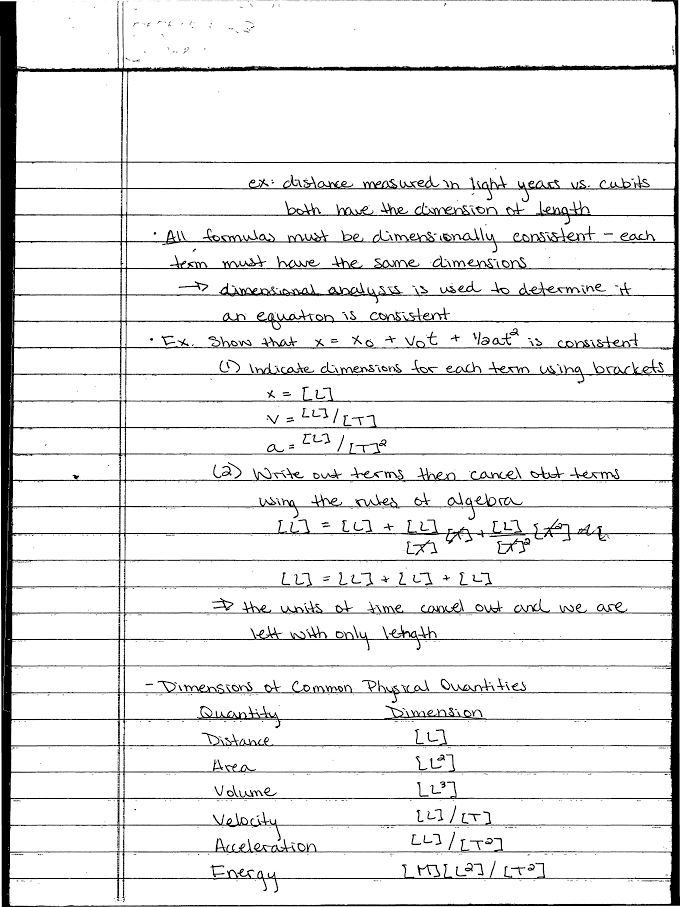 ex: distance measured in light years vs. cubits
both have the dimension of length
· All formulas must be dimensionally consistent – each
term must have the same dimensions
→ dimensional analysis is used to determine if
an equation is consistent
· Ex. Show that x = x₀ + v₀t + ½at² is consistent
(1) Indicate dimensions for each term using brackets
x = [L]
v = [L]/[T]
a = [L]/[T]²
(2) Write out terms then cancel out terms
using the rules of algebra
[L] = [L] + [L]/[T] [T] + [L]/[T]² [T²]
[L] = [L] + [L] + [L]
⇒ the units of time cancel out and we are
left with only length
- Dimensions of Common Physical Quantities
Quantity Dimension
Distance [L]
Area [L²]
Volume [L³]
Velocity [L]/[T]
Acceleration [L]/[T²]
Energy [M][L²]/[T²]